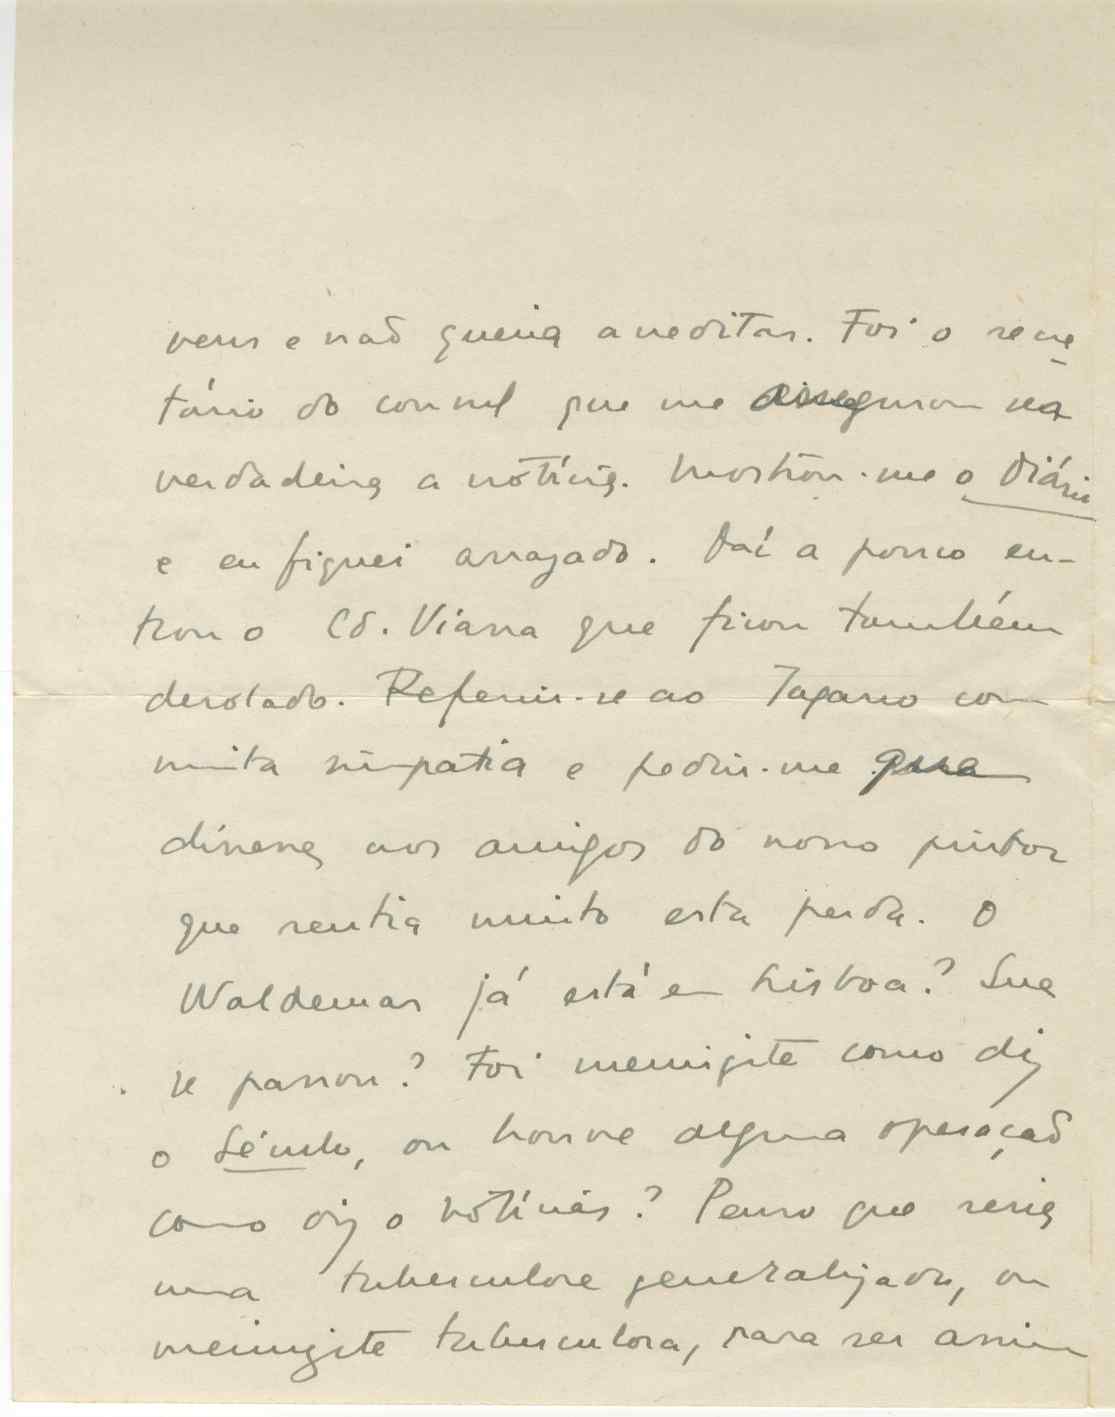 vens e não queria acreditar. Foi o secre
tário do consul que me assegurou ser
verdadeira a notícia. Mostrou-me o Diário
e eu fiquei arrazado. Daí a pouco en-
trou o Cd. Viana que ficou também
desolado. Referiu-se ao Tagarro com
muita simpatia e pediu-me que
dissesse aos amigos do nosso pintor
que sentia muito esta perda. O
Waldemar já está em Lisboa? Que
se passou? Foi meningite como diz
o Século, ou houve alguma operação
como diz o Notícias? Penso que seria
uma tuberculose generalizada, ou
meningite tuberculosa, para ser assim